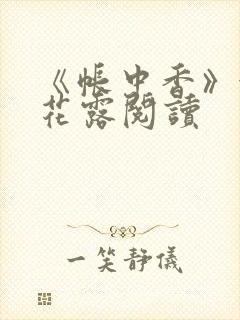 《帳中香》
花露閱讀
一笑靜儀